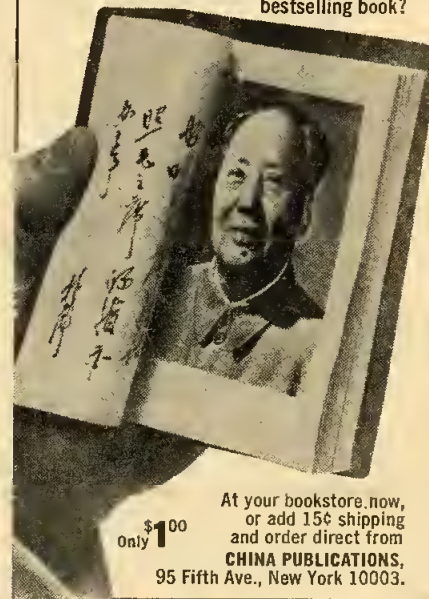 bestselling book?
照毛主席指示
办事
林彪
Only $1.00
At your bookstore now,
or add 15¢ shipping
and order direct from
CHINA PUBLICATIONS,
95 Fifth Ave., New York 10003.